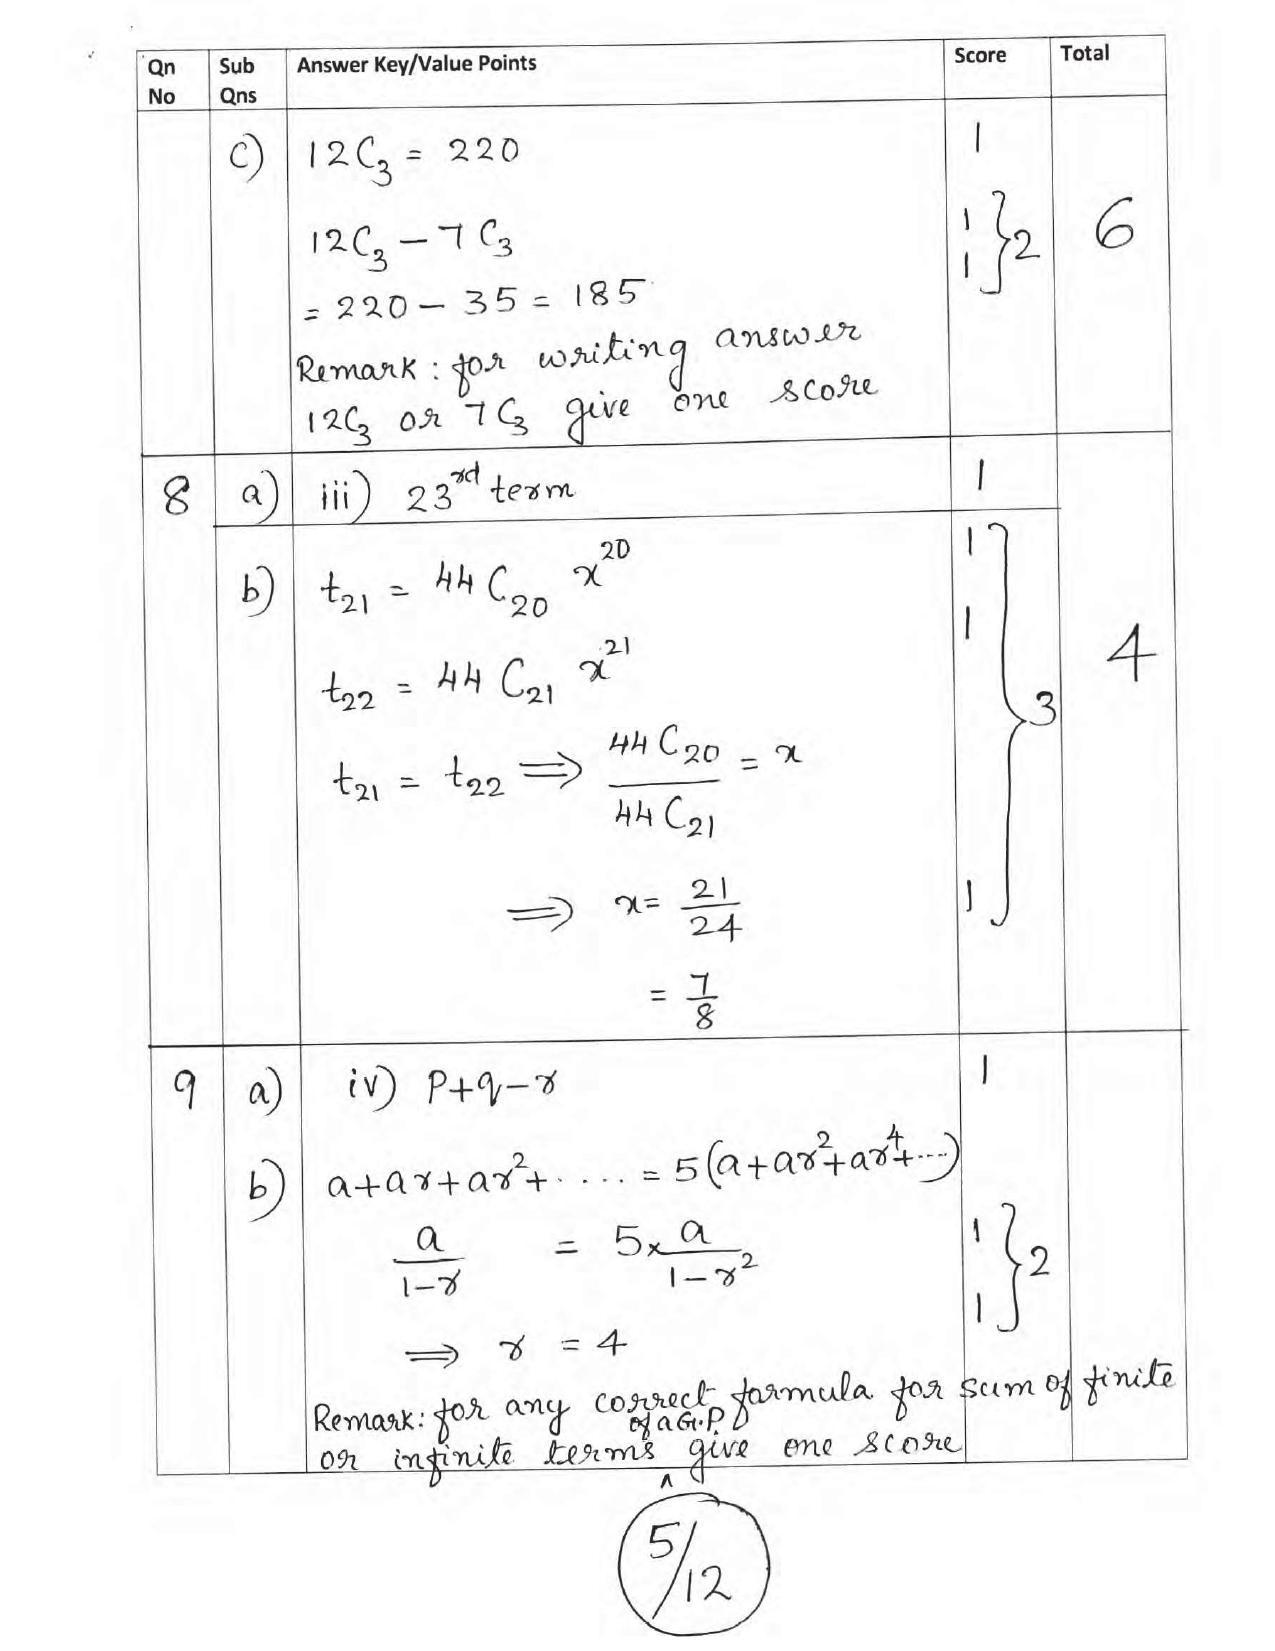 Qn No Sub Qns Answer Key/Value Points Score Total
c) 12C₃ = 220 1
12C₃ − 7C₃ 1 1 } 2 6
= 220 − 35 = 185
Remark : for writing answer
12C₃ or 7C₃ give one score
8 a) iii) 23ʳᵈ term 1
b) t₂₁ = 44C₂₀ x²⁰ 1
t₂₂ = 44C₂₁ x²¹ 1 4
t₂₁ = t₂₂ ⟹ 44C₂₀ / 44C₂₁ = x } 3
⟹ x = 21/24 1
= 7/8
9 a) iv) p+q−r 1
b) a+ar+ar²+..... = 5(a+ar²+ar⁴+....)
a/(1−r) = 5× a/(1−r²) 1
⟹ r = 4 1 } 2
Remark: for any correct formula for sum of finite
or infinite terms of a G.P. give one score
5/12